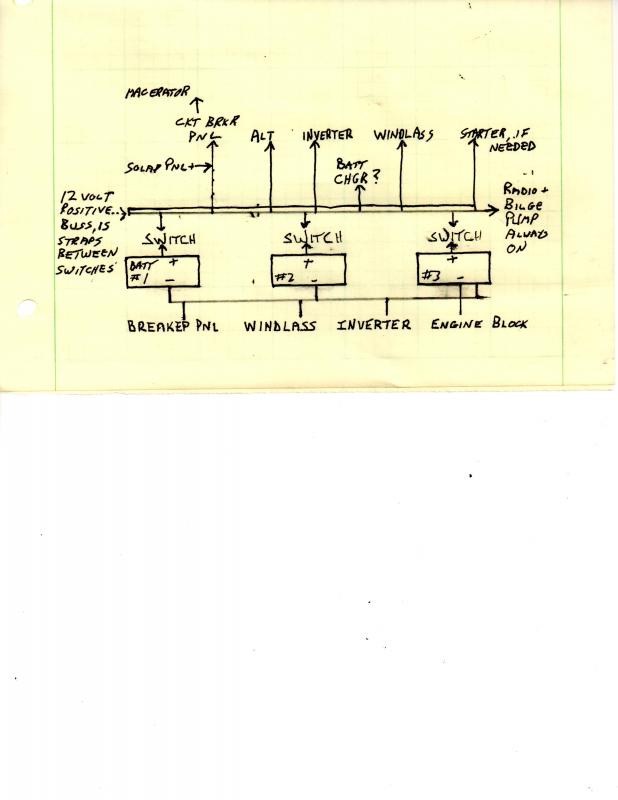 MACERATOR
CKT BRKR
PNL
ALT
INVERTER
WINDLASS
STARTER, IF
NEEDED
SOLAR PNL+
BATT
CHGR?
12 VOLT
POSITIVE..
BUSS, IS
STRAPS
BETWEEN
SWITCHES
RADIO +
BILGE
PUMP
ALWAYS
ON
SWITCH
SWITCH
SWITCH
BATT +
#1 -
+
#2 -
+
#3 -
BREAKER PNL
WINDLASS
INVERTER
ENGINE BLOCK